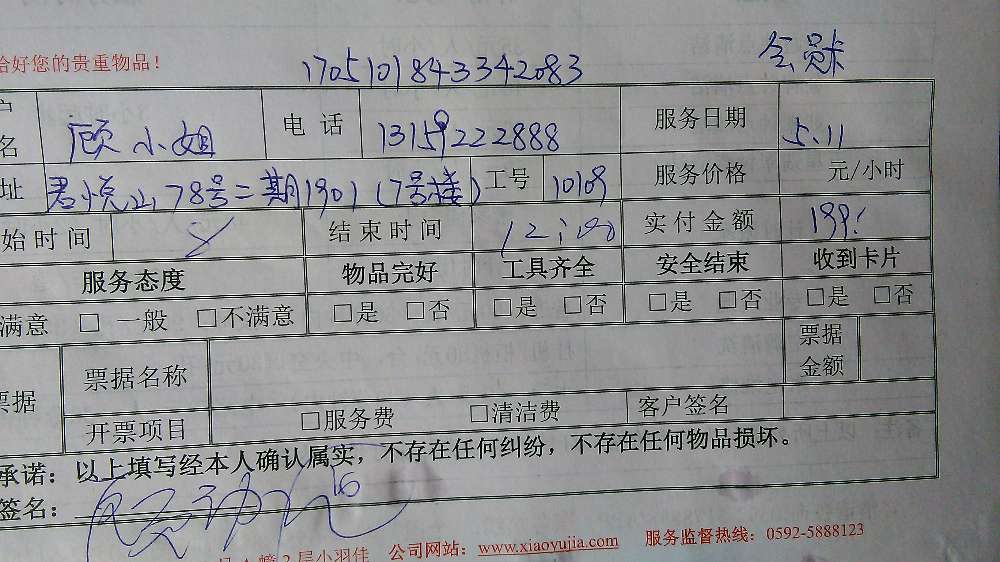 合好您的贵重物品！
1705101843342083 会员卡
户名 顾小姐 电话 13159222888 服务日期 5.11
址 君悦山78号二期1901(7号楼) 工号 10109 服务价格 元/小时
始时间 8 结束时间 12:00 实付金额 199.
服务态度 物品完好 工具齐全 安全结束 收到卡片
满意 □ 一般 □不满意 □是 □否 □是 □否 □是 □否 □是 □否
票据 票据名称 票据金额
开票项目 □服务费 □清洁费 客户签名
承诺：以上填写经本人确认属实，不存在任何纠纷，不存在任何物品损坏。
签名：
2层小羽佳 公司网站：www.xiaoyujia.com 服务监督热线：0592-5888123